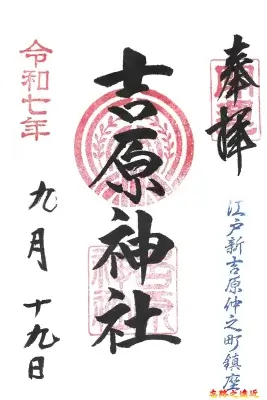 奉拝
江戸新吉原仲之町鎮座
吉原神社
令和七年
九月十九日